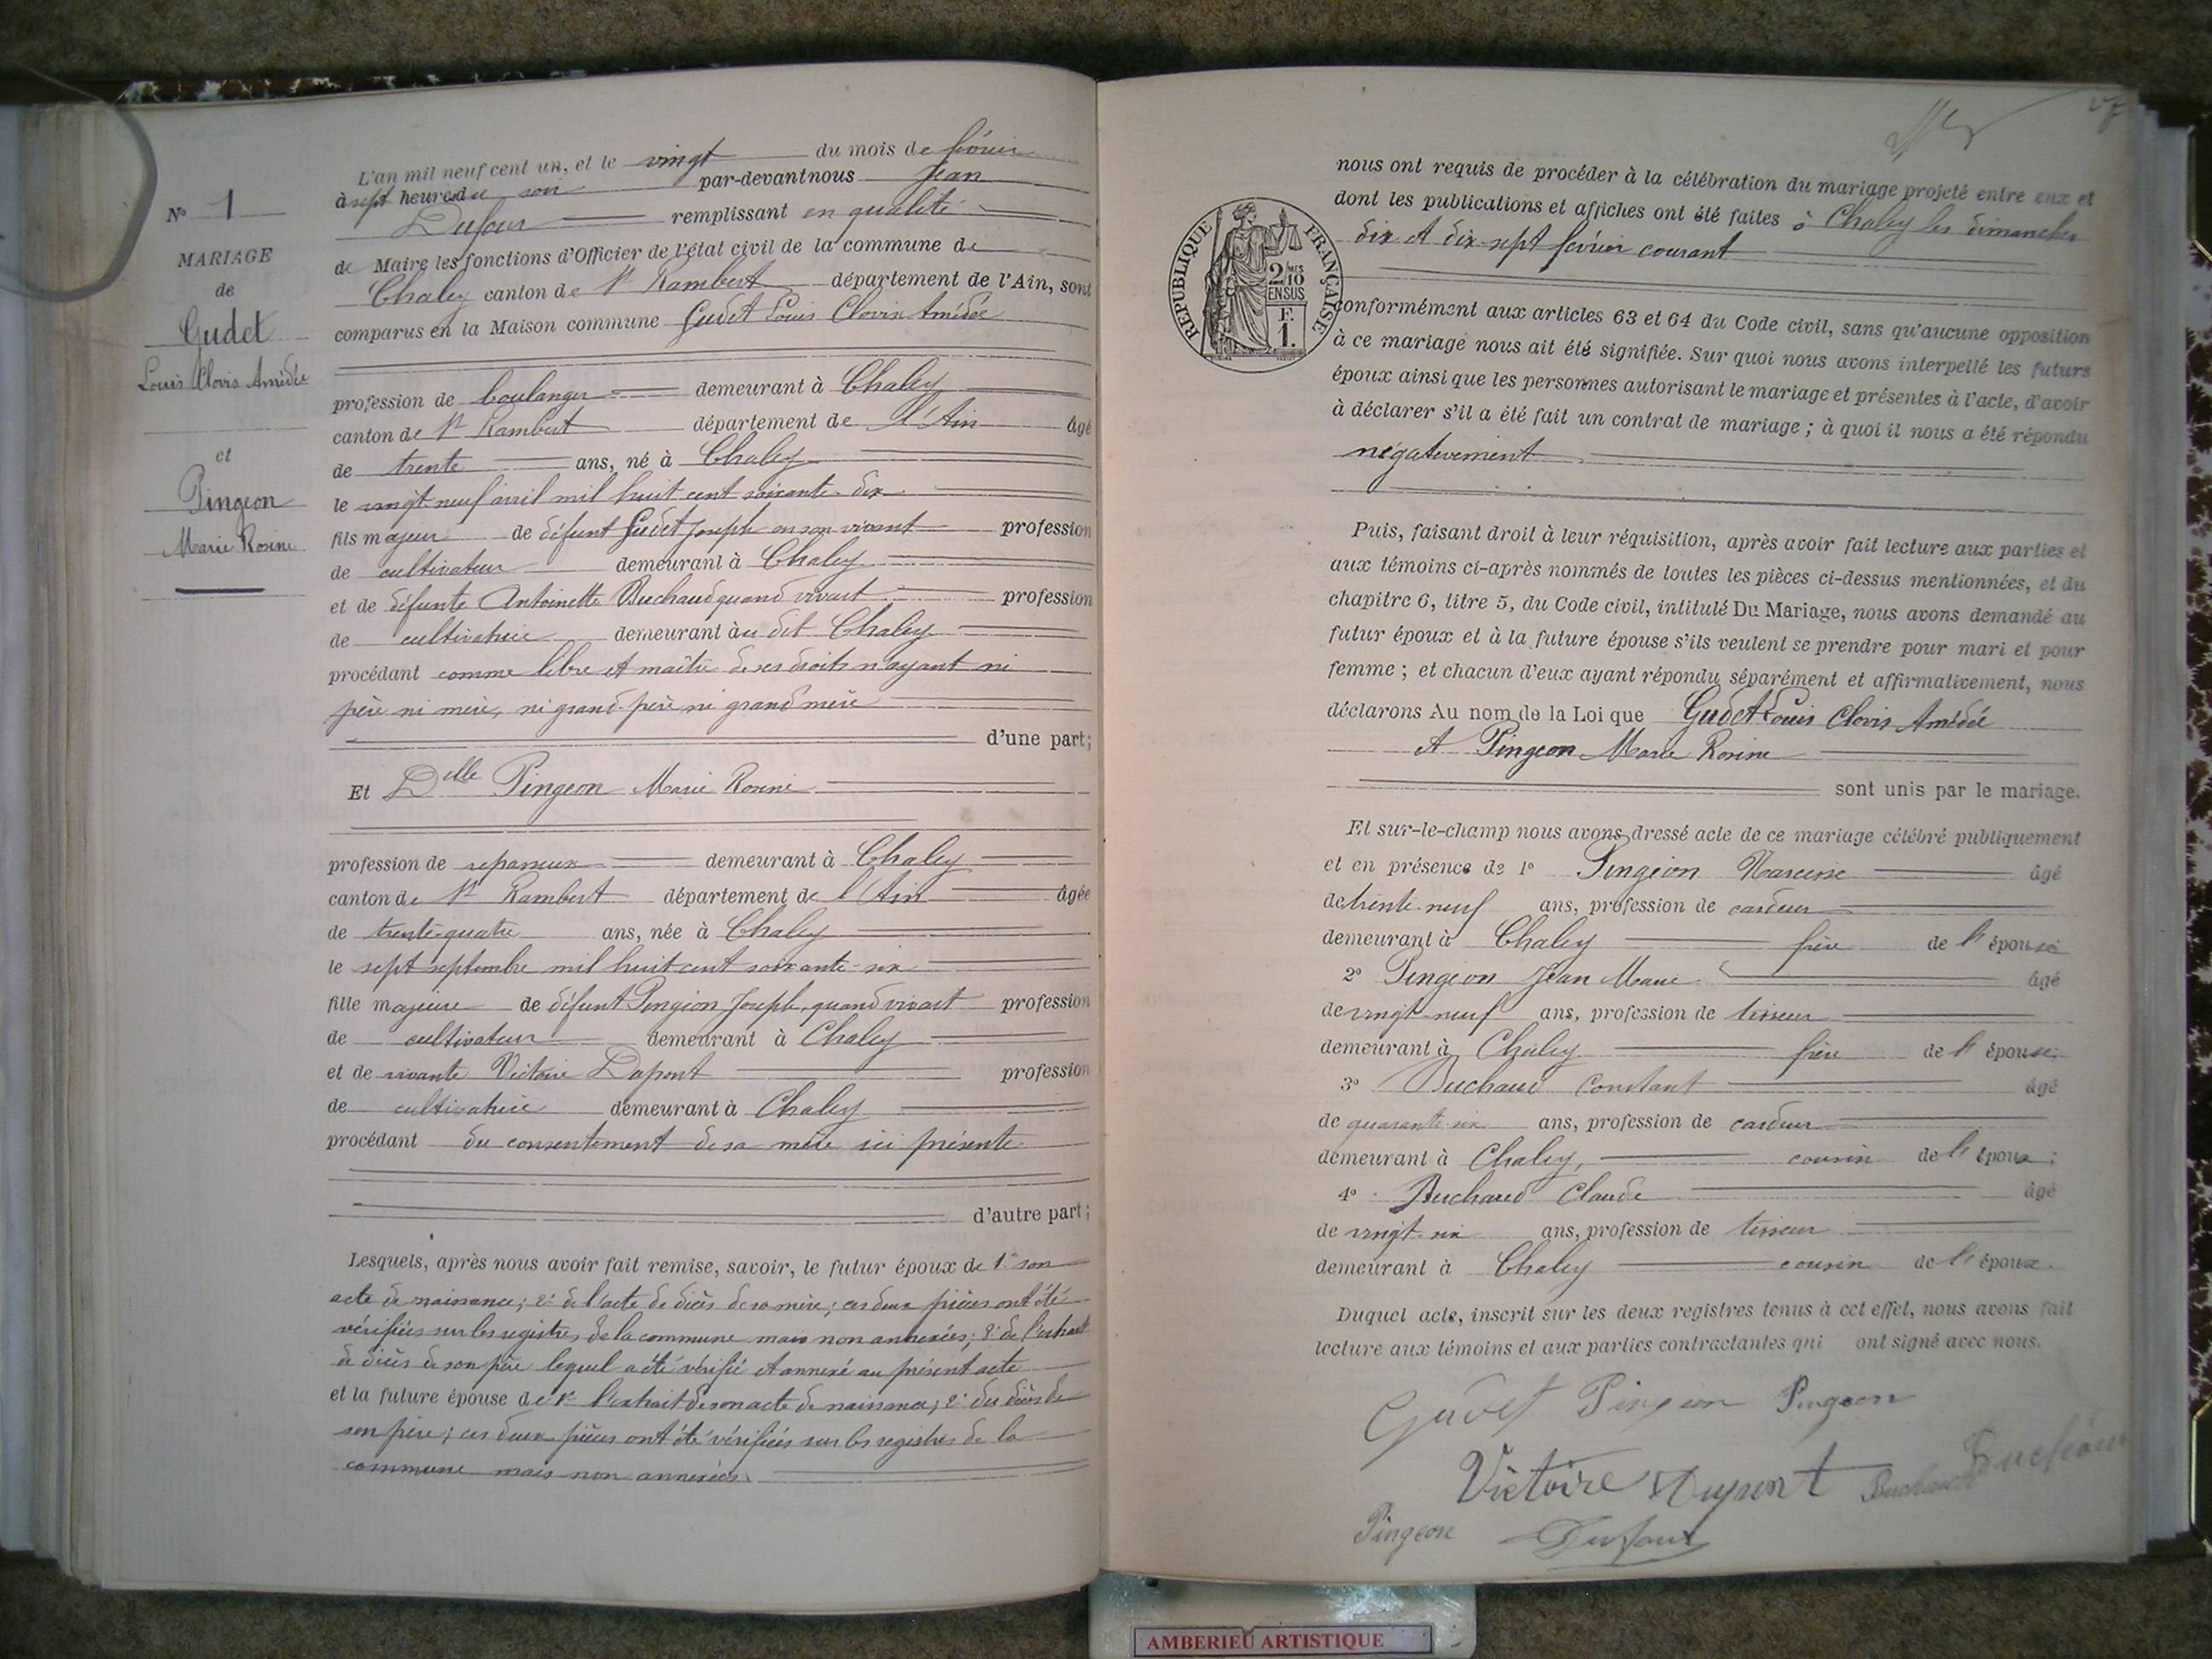 N° 1
MARIAGE
de
Gudet
Louis Clovis Amédée
et
Pingeon
Marie Rosine
L'an mil neuf cent un, et le vingt du mois de février
à sept heures du soir par-devant nous Jean
Dufour remplissant en qualité
de Maire les fonctions d'Officier de l'état civil de la commune de
Chaley canton de St Rambert département de l'Ain, sont
comparus en la Maison commune Gudet Louis Clovis Amédée
profession de boulanger demeurant à Chaley
canton de St Rambert département de l'Ain âgé
de trente ans, né à Chaley
le vingt-neuf avril mil huit cent soixante-dix
fils majeur de défunt Gudet Joseph en son vivant profession
de cultivateur demeurant à Chaley
et de défunte Antoinette Buchaud quand vivait profession
de cultivatrice demeurant à au dit Chaley
procédant comme libre et maître de ses droits n'ayant ni
père ni mère, ni grand-père ni grand mère
d'une part;
Et Delle Pingeon Marie Rosine
profession de demeurant à Chaley
canton de St Rambert département de l'Ain âgée
de trente-quatre ans, née à Chaley
le sept septembre mil huit cent soixante-six
fille majeure de défunt Pingeon Joseph, quand vivait profession
de cultivateur demeurant à Chaley
et de vivante Victoire Dupont profession
de cultivatrice demeurant à Chaley
procédant du consentement de sa mère ici présente
d'autre part;
Lesquels, après nous avoir fait remise, savoir, le futur époux de 1° son
acte de naissance; 2° de l'acte de décès de sa mère; ces deux pièces ont été
vérifiées sur les registres de la commune mais non annexées; 3° de l'extrait
de décès de son père lequel a été vérifié et annexé au présent acte
et la future épouse de 1° l'extrait de son acte de naissance; 2° du décès de
son père; ces deux pièces ont été vérifiées sur les registres de la
commune mais non annexées.
nous ont requis de procéder à la célébration du mariage projeté entre eux et
dont les publications et affiches ont été faites à Chaley les dimanches
dix et dix-sept février courant
RÉPUBLIQUE FRANÇAISE
2/10 MES
EN SUS
F.
1.
conformément aux articles 63 et 64 du Code civil, sans qu'aucune opposition
à ce mariage nous ait été signifiée. Sur quoi nous avons interpellé les futurs
époux ainsi que les personnes autorisant le mariage et présentes à l'acte, d'avoir
à déclarer s'il a été fait un contrat de mariage; à quoi il nous a été répondu
négativement
Puis, faisant droit à leur réquisition, après avoir fait lecture aux parties et
aux témoins ci-après nommés de toutes les pièces ci-dessus mentionnées, et du
chapitre 6, titre 5, du Code civil, intitulé Du Mariage, nous avons demandé au
futur époux et à la future épouse s'ils veulent se prendre pour mari et pour
femme; et chacun d'eux ayant répondu séparément et affirmativement, nous
déclarons Au nom de la Loi que Gudet Louis Clovis Amédée
et Pingeon Marie Rosine
sont unis par le mariage.
Et sur-le-champ nous avons dressé acte de ce mariage célébré publiquement
et en présence de 1° Pingeon Narcisse âgé
de trente-neuf ans, profession de cardeur
demeurant à Chaley frère de l'épouse
2° Pingeon Jean Marie âgé
de vingt-neuf ans, profession de tisseur
demeurant à Chaley frère de l'épouse;
3° Buchaud Constant âgé
de quarante-six ans, profession de cardeur
demeurant à Chaley, cousin de l'époux;
4° Buchaud Claude âgé
de vingt-six ans, profession de tisseur
demeurant à Chaley cousin de l'époux.
Duquel acte, inscrit sur les deux registres tenus à cet effet, nous avons fait
lecture aux témoins et aux parties contractantes qui ont signé avec nous.
Gudet Pingeon Pingeon
Victoire Dupont Buchaud Buchaud
Pingeon Dufour
AMBERIEU ARTISTIQUE